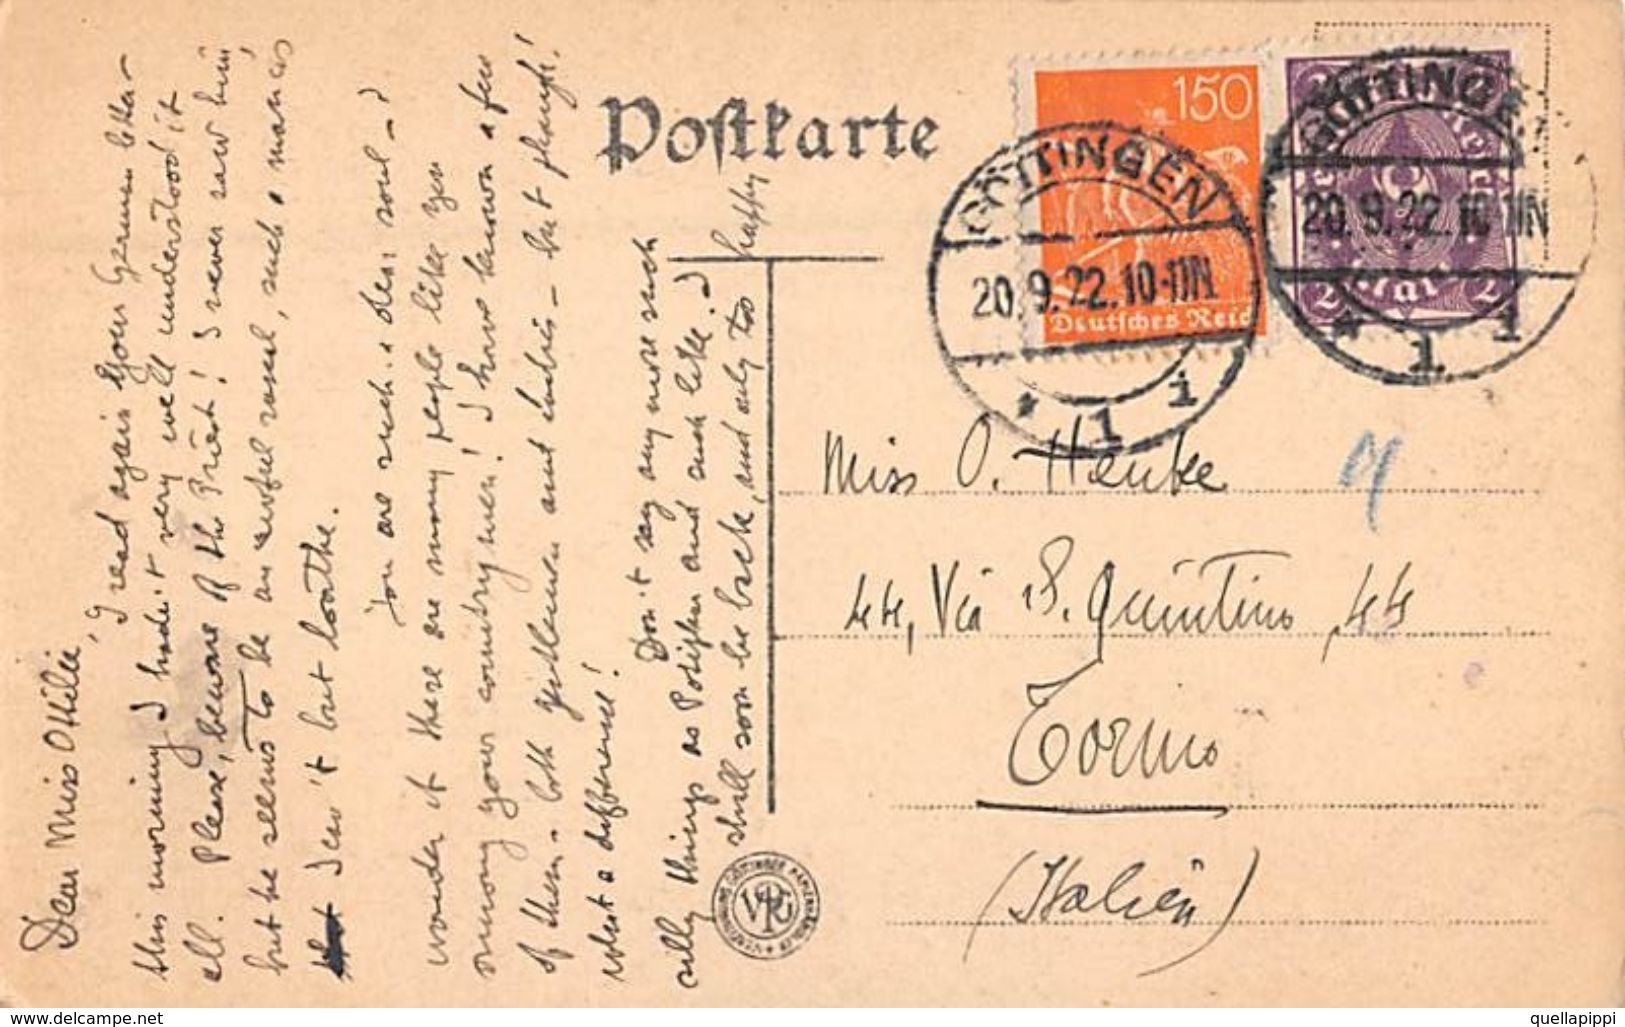 Dear Miss Ottilie,
I read again your German letter
this morning I hadn't very well understood it
all. Please, beware of the Priest! I never saw him
but he seems to be an awful rascal, such a man as
I can't but loathe.
You are such a dear soul - I
wonder if there are many people like you
among your countrymen! I have known a few
of them - both gentlemen and ladies - but though!
what a difference!
Don't say any more such
silly things as and such like. I
shall soon be back, and only too
happy
Postkarte
150
Deutsches Reich
GÖTTINGEN
20.9.22.10-11N
* 1 i
2 2
Mark
GÖTTINGEN
20.9.22.10-11N
* 1. 1
Miss O. Henke
44, Via S. Quintino, 44
Torino
(Italien)
delcampe.net
quellapippi